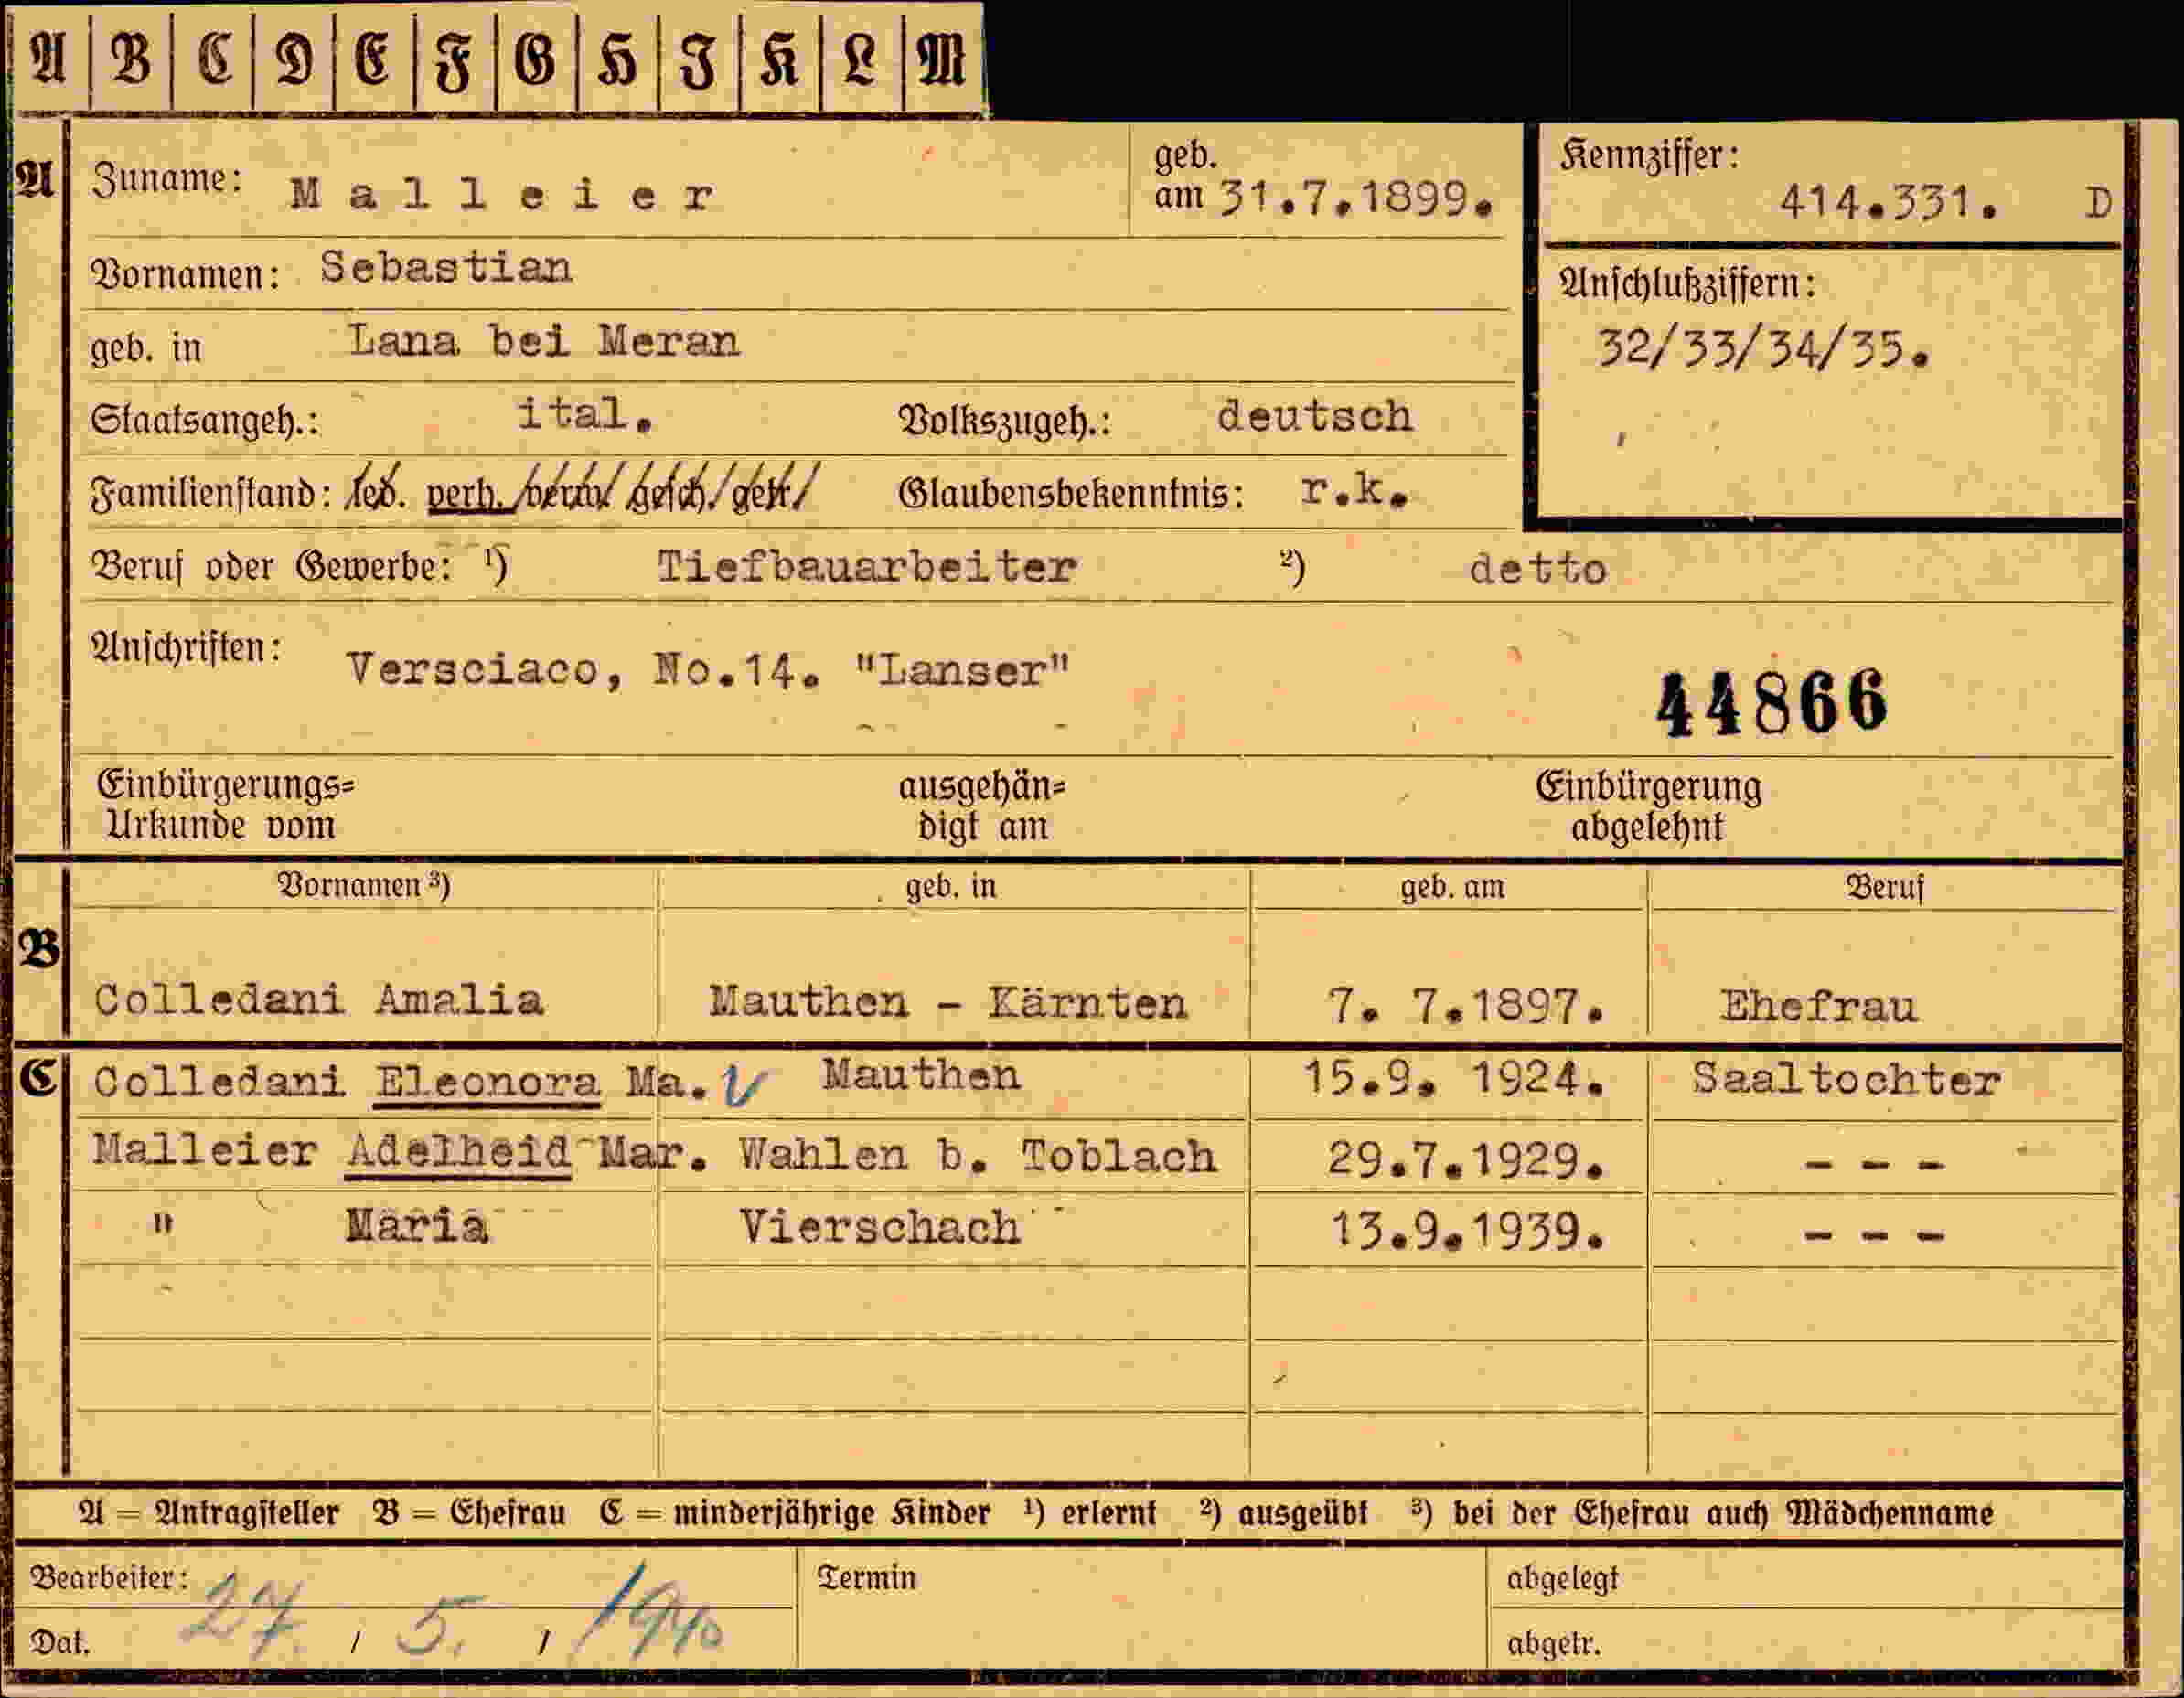 A B C D E F G H I K L M
A Zuname: Malleier geb. am 31.7.1899. Kennziffer: 414.331. D
Vornamen: Sebastian Anschlußziffern:
geb. in Lana bei Meran 32/33/34/35.
Staatsangeh.: ital. Volkszugeh.: deutsch
Familienstand: led. verh. verw. gesch. getr. Glaubensbekenntnis: r.k.
Beruf oder Gewerbe: ¹) Tiefbauarbeiter ²) detto
Anschriften: Versciaco, No.14. "Lanser"
44866
Einbürgerungs= ausgehän= Einbürgerung
Urkunde vom digt am abgelehnt
Vornamen ³) geb. in geb. am Beruf
B
Colledani Amalia Mauthen - Kärnten 7. 7.1897. Ehefrau
C Colledani Eleonora Ma. Mauthen 15.9. 1924. Saaltochter
Malleier Adelheid Mar. Wahlen b. Toblach 29.7.1929. - - -
" Maria Vierschach 13.9.1939. - - -
A = Antragsteller B = Ehefrau C = minderjährige Kinder ¹) erlernt ²) ausgeübt ³) bei der Ehefrau auch Mädchenname
Bearbeiter: Termin abgelegt
Dat. 27. / 5. / 1940 abgetr.